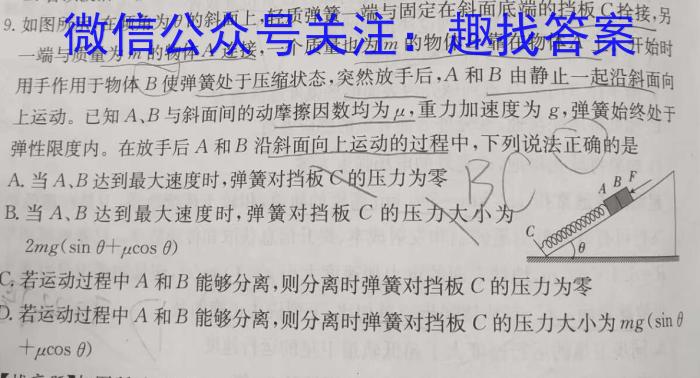 9. 如图所示,在倾角为θ的斜面上,轻质弹簧一端与固定在斜面底端的挡板C拴接,另
微信公众号关注：趣找答案
一端与质量为m的物体A连接,一个质量也为m的物体 靠在物体A 开始时
用手作用于物体B使弹簧处于压缩状态,突然放手后,A和B由静止一起沿斜面向
上运动。已知A、B与斜面间的动摩擦因数均为μ,重力加速度为g,弹簧始终处于
弹性限度内。在放手后A和B沿斜面向上运动的过程中,下列说法正确的是
A. 当A、B达到最大速度时,弹簧对挡板C的压力为零
B. 当A、B达到最大速度时,弹簧对挡板C的压力大小为
2mg(sin θ+μcos θ)
C. 若运动过程中A和B能够分离,则分离时弹簧对挡板C的压力为零
D. 若运动过程中A和B能够分离,则分离时弹簧对挡板C的压力大小为mg(sin θ
+μcos θ)
BC
A B F
C
θ